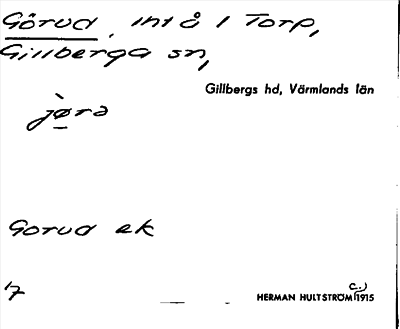 Görud, int å i Torp,
Gillberga sn,
Gillbergs hd, Värmlands län
jø̀ra
Gorud ek
17
HERMAN HULTSTRÖM (c.) 1915